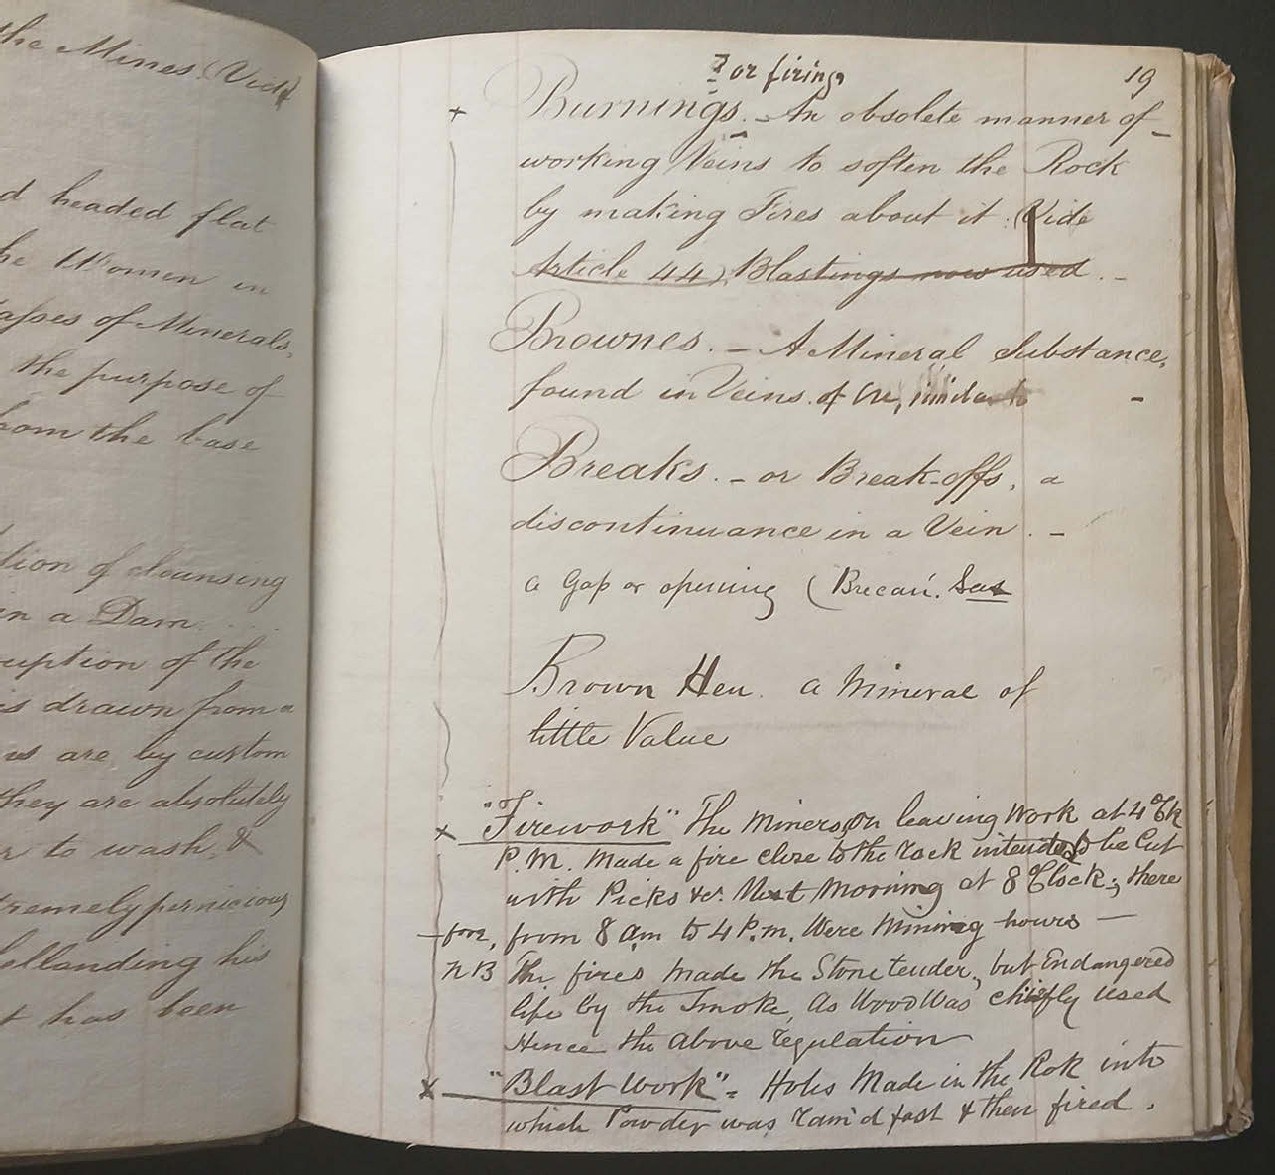 the Mines (Vide
d headed flat
he Women in
apses of Minerals,
the purpose of
from the base
tion of cleansing
in a Dam
ruption of the
is drawn from a
us are by custom
they are absolutely
r to wash, &
tremely pernicious
ellanding his
t has been
19
? or firing
+ Burnings. - An obsolete manner of
working Veins to soften the Rock
by making Fires about it. (Vide
Article 44) Blastings now used. -
Brownes. - A Mineral Substance,
found in Veins of Ore, similar to -
Breaks. - or Break-offs, a
discontinuance in a Vein. -
a Gap or opening (Brecan. Sax
Brown Hen. a Mineral of
little Value
x "Firework" The Miners, on leaving Work at 4 O'Ck
P.M. Made a fire close to the rock intended to be Cut
with Picks &c. Next Morning at 8 O'Clock; there
-fore, from 8 am to 4 P.m. Were Mining hours —
NB The fires made the Stone tender, but Endangered
life by the Smoke, As Wood Was chiefly used
Hence the Above regulation
x "Blast Work" = Holes Made in the Rok into
which Powder was ram'd fast & then fired.